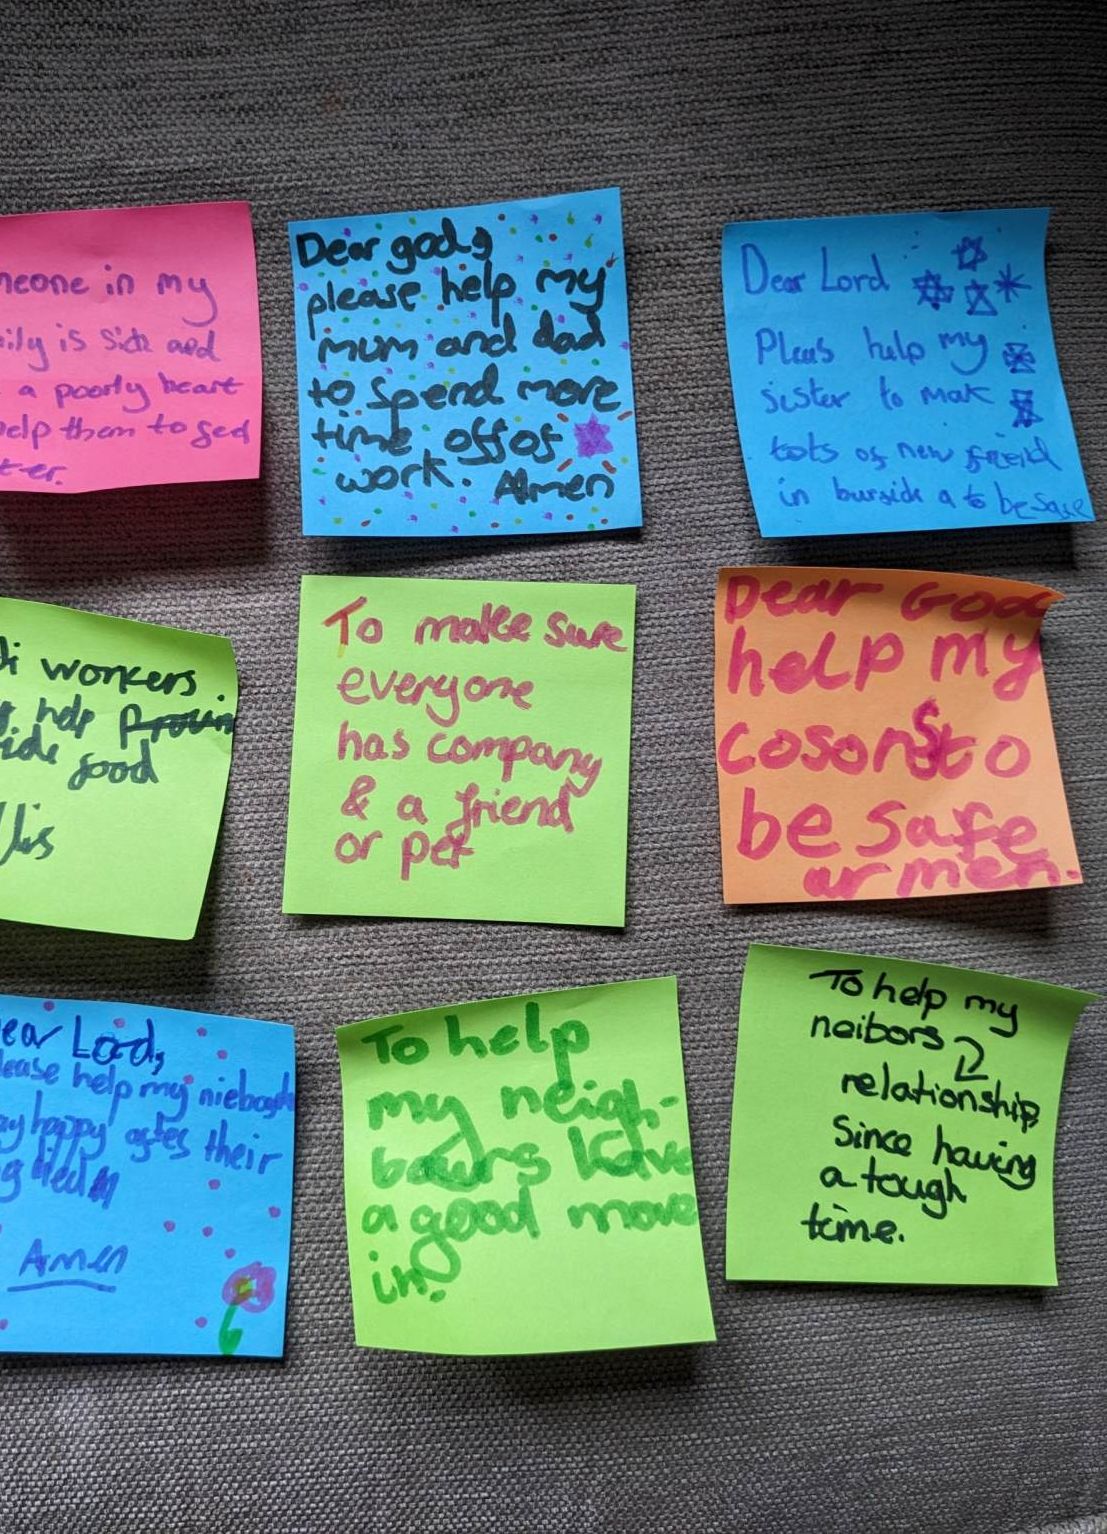 meone in my
ily is sick and
a poorly heart
help them to
ter.
Dear god,
please help my
mum and dad
to spend more
time off of
work. Amen
Dear Lord
Pleas help my
sister to mak
lots of new
in a to be safe
i workers.
help
ide good
To make sure
everyone
has company
& a friend
or pet
Dear God
help my
cosons to
be safe
ar men.
ear Lord,
lease help my
ay happy after their
g died
Amen
To help
my neigh-
bours have
a good move
in.
To help my
neibors
relationship
Since having
a tough
time.